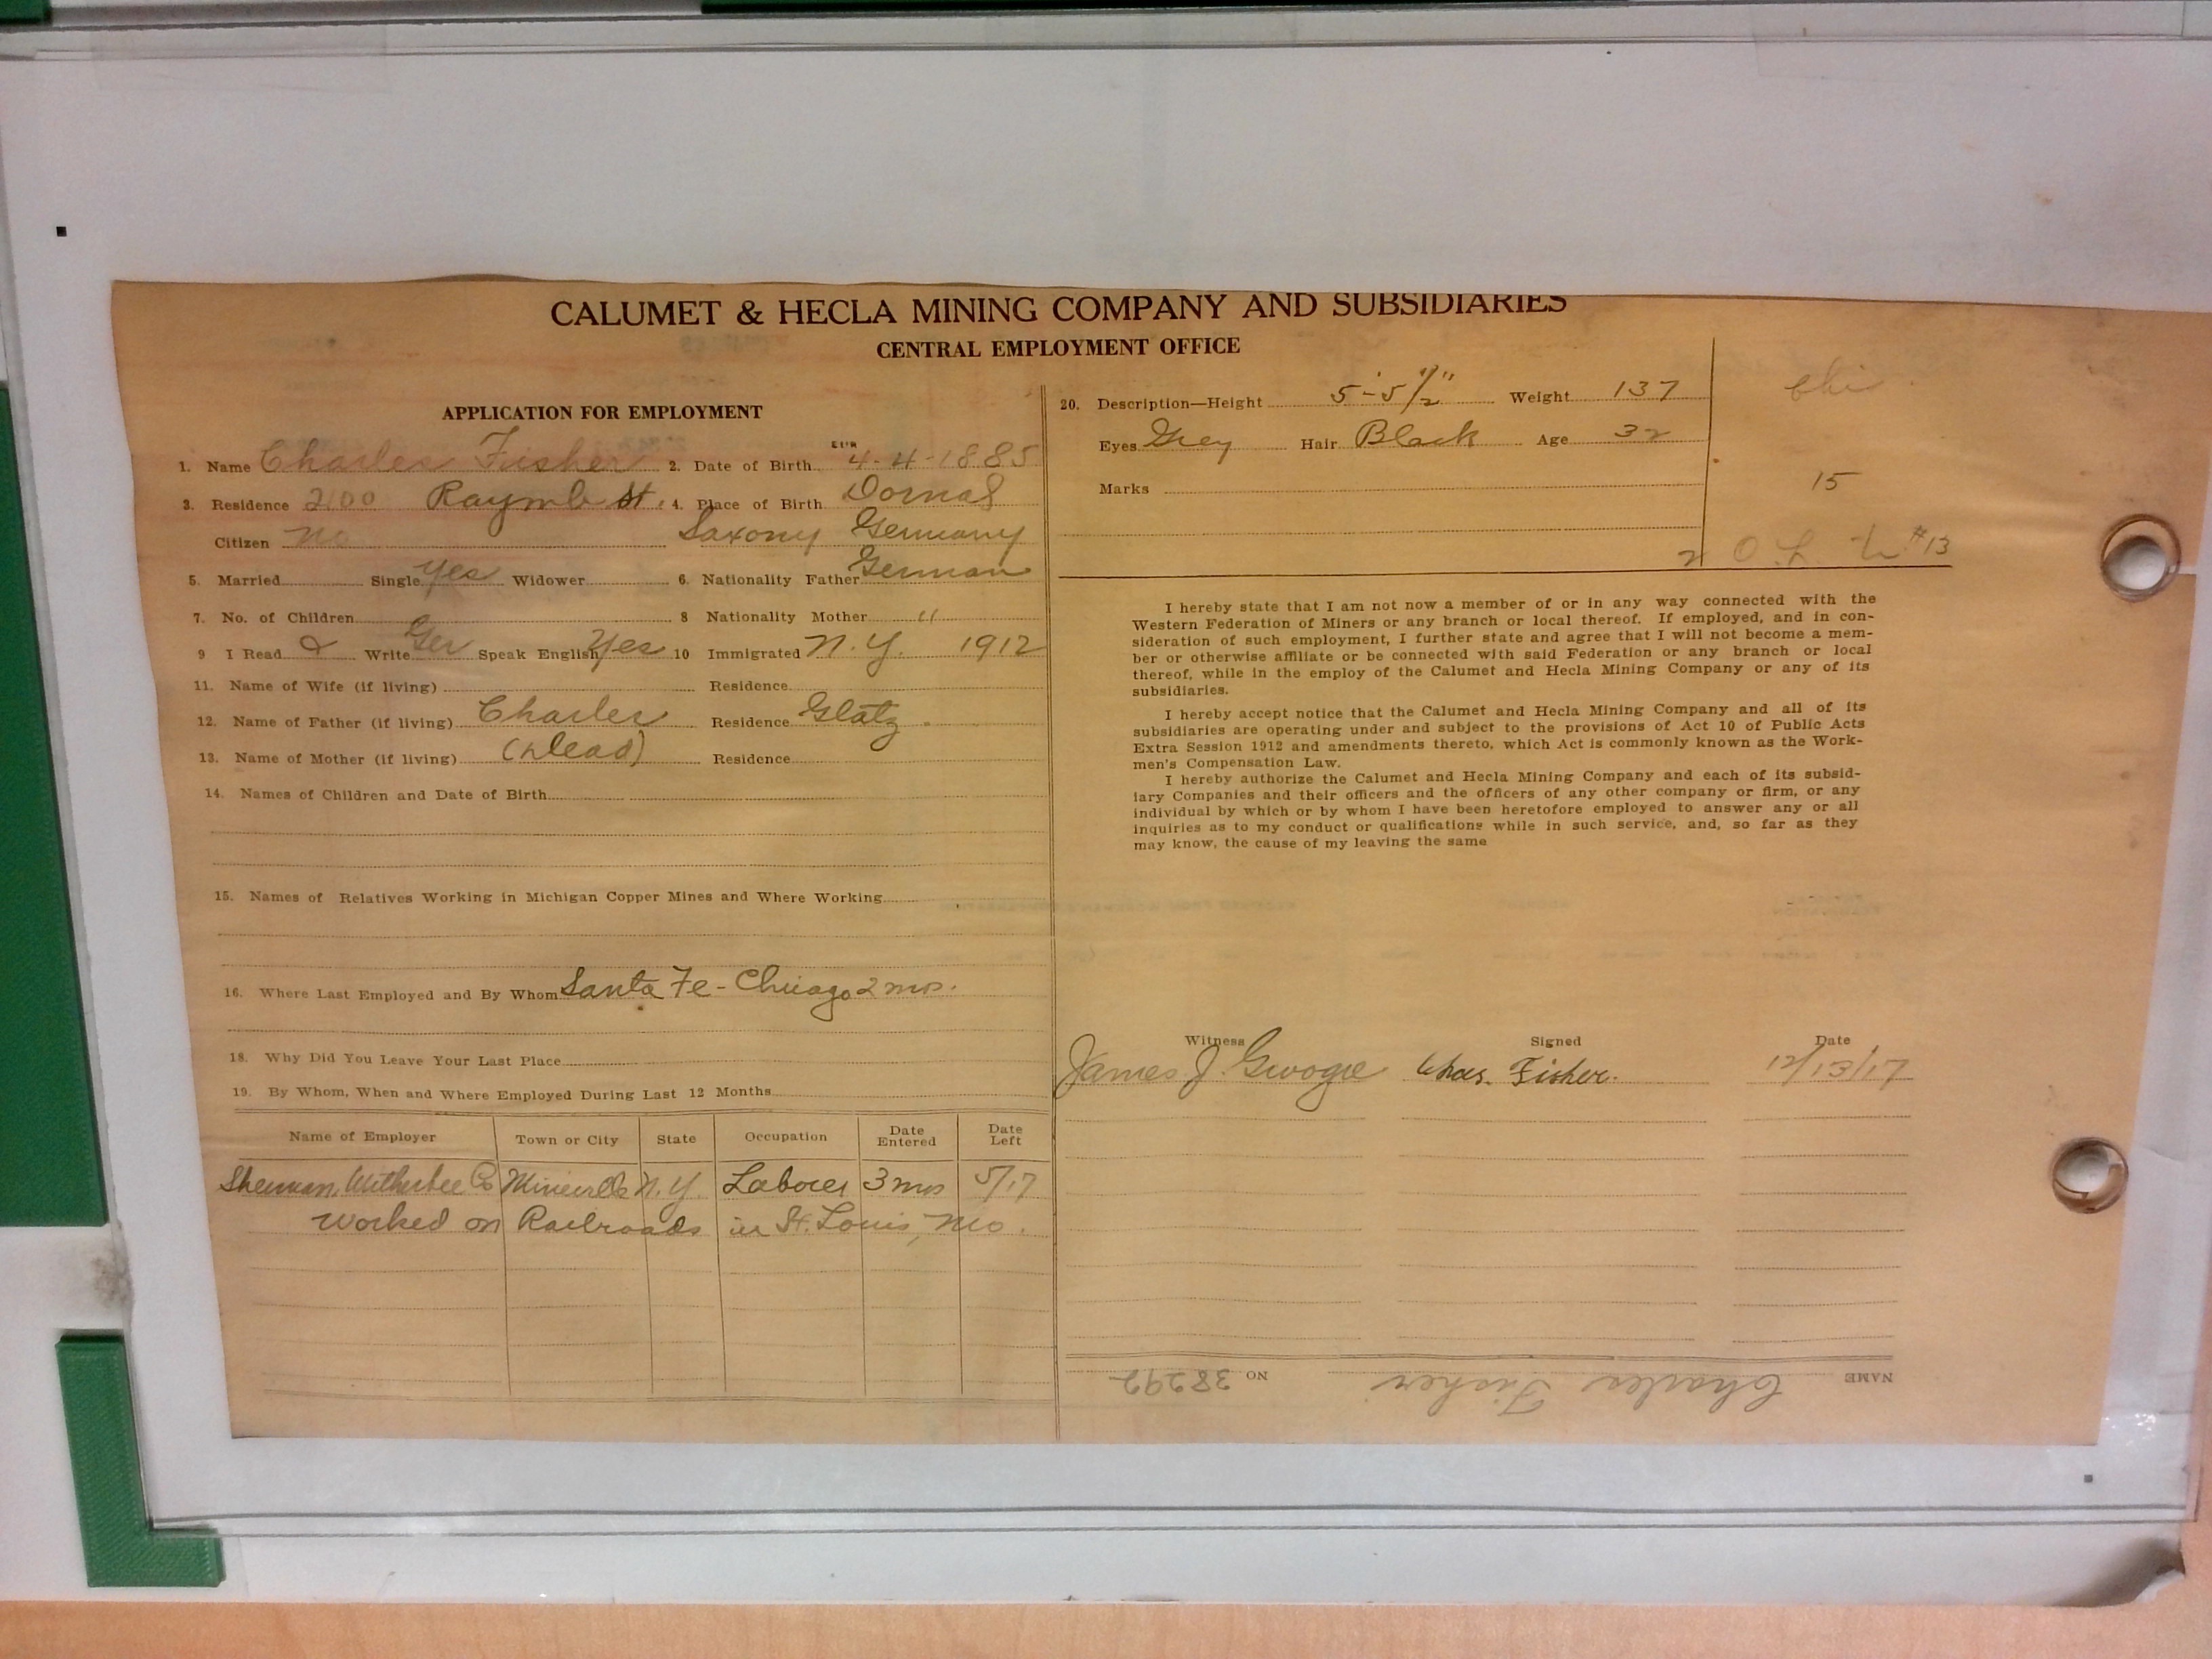 CALUMET & HECLA MINING COMPANY AND SUBSIDIARIES
CENTRAL EMPLOYMENT OFFICE
APPLICATION FOR EMPLOYMENT
1. Name Charles Fisher 2. Date of Birth 4-4-1885
3. Residence 2100 Raymb St. 4. Place of Birth
Citizen No Saxony Germany
5. Married Single Yes Widower 6. Nationality Father German
7. No. of Children 8 Nationality Mother "
9 I Read & Write Ger Speak English Yes 10 Immigrated N.Y. 1912
11. Name of Wife (if living) Residence
12. Name of Father (if living) Charles Residence Glatz.
13. Name of Mother (if living) (Dead) Residence
14. Names of Children and Date of Birth
15. Names of Relatives Working in Michigan Copper Mines and Where Working
16. Where Last Employed and By Whom Santa Fe - Chicago 2 mos.
18. Why Did You Leave Your Last Place
19. By Whom, When and Where Employed During Last 12 Months
Name of Employer Town or City State Occupation Date Entered Date Left
Sherman, Witherbee Co Mineville N.Y. Laborer 3 mos 5/17
Worked on Railroads in St. Louis, Mo.
20. Description—Height 5'-5 1/2" Weight 137
Eyes Grey Hair Black Age 32
Marks
Chi
15
#13
I hereby state that I am not now a member of or in any way connected with the
Western Federation of Miners or any branch or local thereof. If employed, and in con-
sideration of such employment, I further state and agree that I will not become a mem-
ber or otherwise affiliate or be connected with said Federation or any branch or local
thereof, while in the employ of the Calumet and Hecla Mining Company or any of its
subsidiaries.
I hereby accept notice that the Calumet and Hecla Mining Company and all of its
subsidiaries are operating under and subject to the provisions of Act 10 of Public Acts
Extra Session 1912 and amendments thereto, which Act is commonly known as the Work-
men's Compensation Law.
I hereby authorize the Calumet and Hecla Mining Company and each of its subsid-
iary Companies and their officers and the officers of any other company or firm, or any
individual by which or by whom I have been heretofore employed to answer any or all
inquiries as to my conduct or qualifications while in such service, and, so far as they
may know, the cause of my leaving the same
Witness Signed Date
James J. Chas. Fisher. 12/13/17
NAME Charles Fisher NO 38292